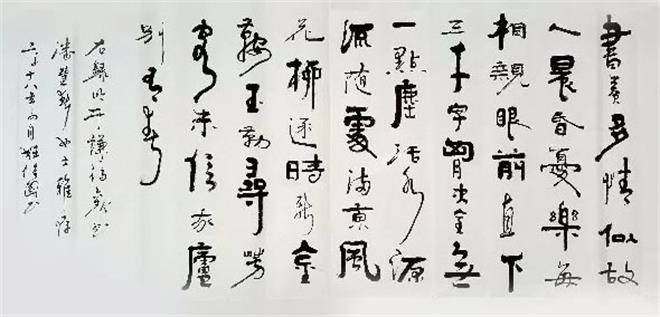 書卷多情似故
人晨昏憂樂每
相親眼前直下
三千字胸次全無
一點塵活水源
流随處滿東風
花柳逐時新金
鞍玉勒尋芳
客未信我廬
別有春
右録明于謙詩觀書
潘女士雅存